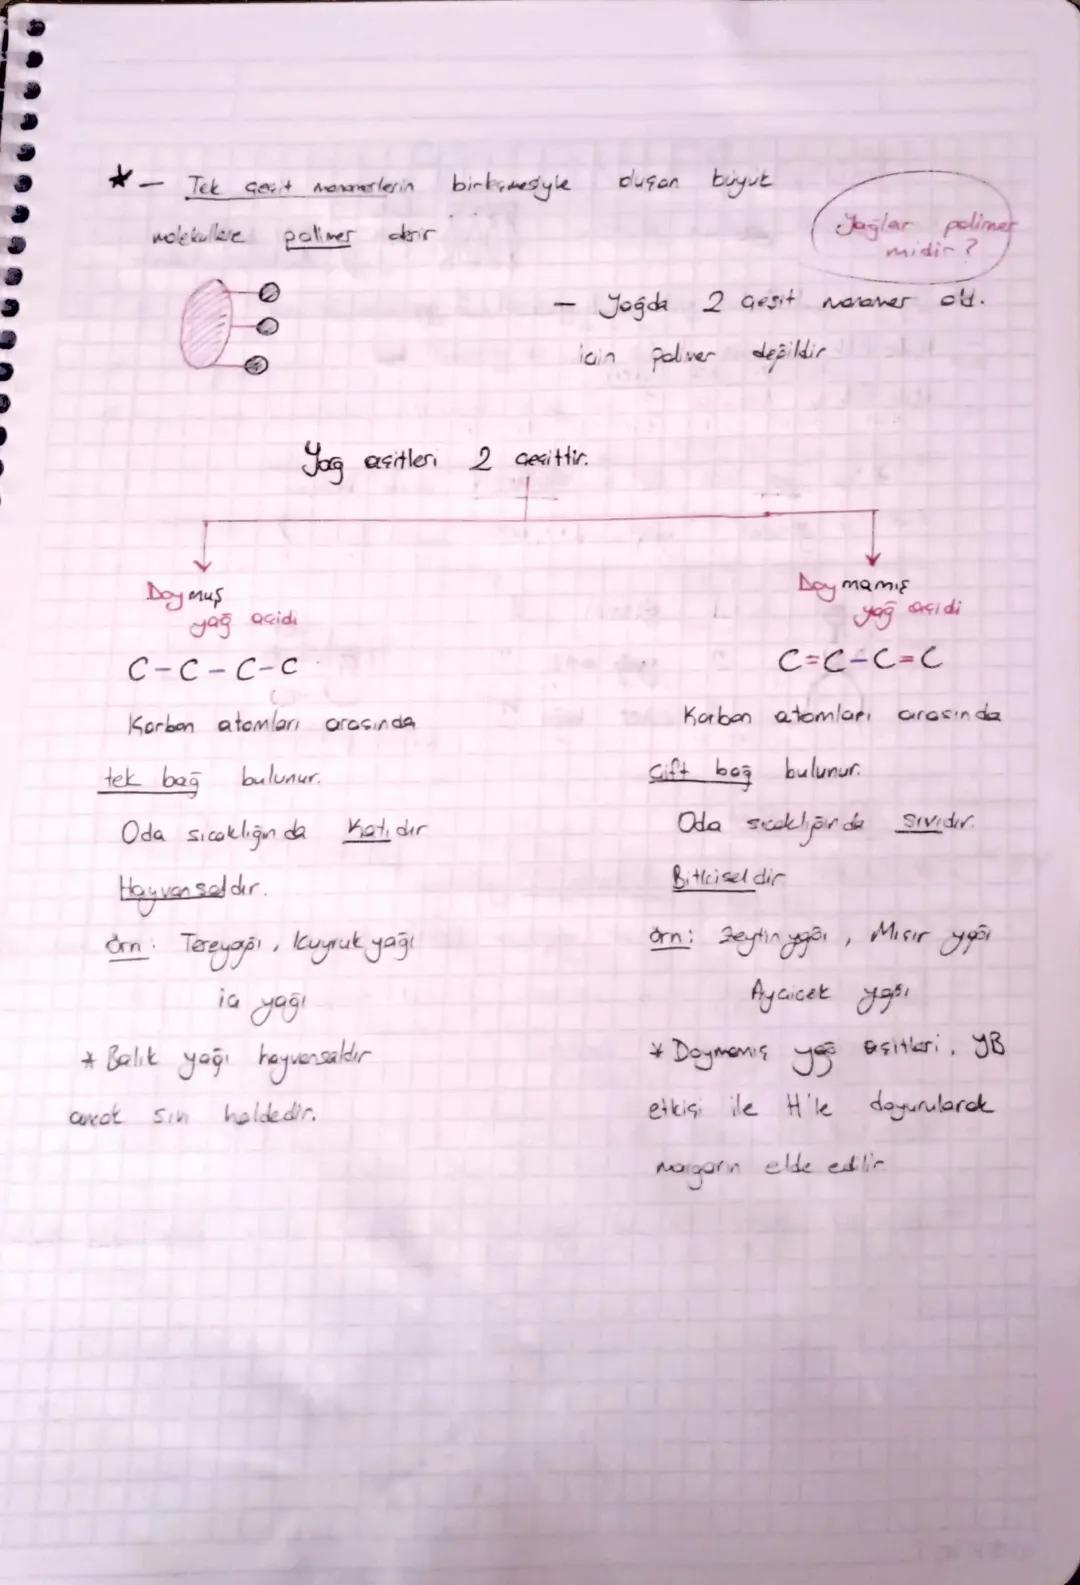 * - Tek çeşit monomerlerin birleşmesiyle oluşan büyük
moleküllere polimer denir
Yağlar polimer
midir?
- Yağda 2 çeşit monomer old.
için polimer değildir
Yağ asitleri 2 çeşittir.
Doymuş
yağ asidi
C-C-C-C
Karbon atomları arasında
tek bağ bulunur.
Oda sıcaklığında Katıdır
Hayvansaldır.
örn: Tereyağı, Kuyruk yağı
iç yağı
* Balık yağı hayvansaldır
ancak sıvı haldedir.
Doymamış
yağ asidi
C=C-C=C
Karbon atomları arasında
çift bağ bulunur.
Oda sıcaklığında sıvıdır.
Bitkiseldir
örn: Zeytin yağı, Mısır yağı
Ayçiçek yağı
* Doymamış yağ asitleri, YB
etkisi ile H'le doyurularak
margarin elde edilir